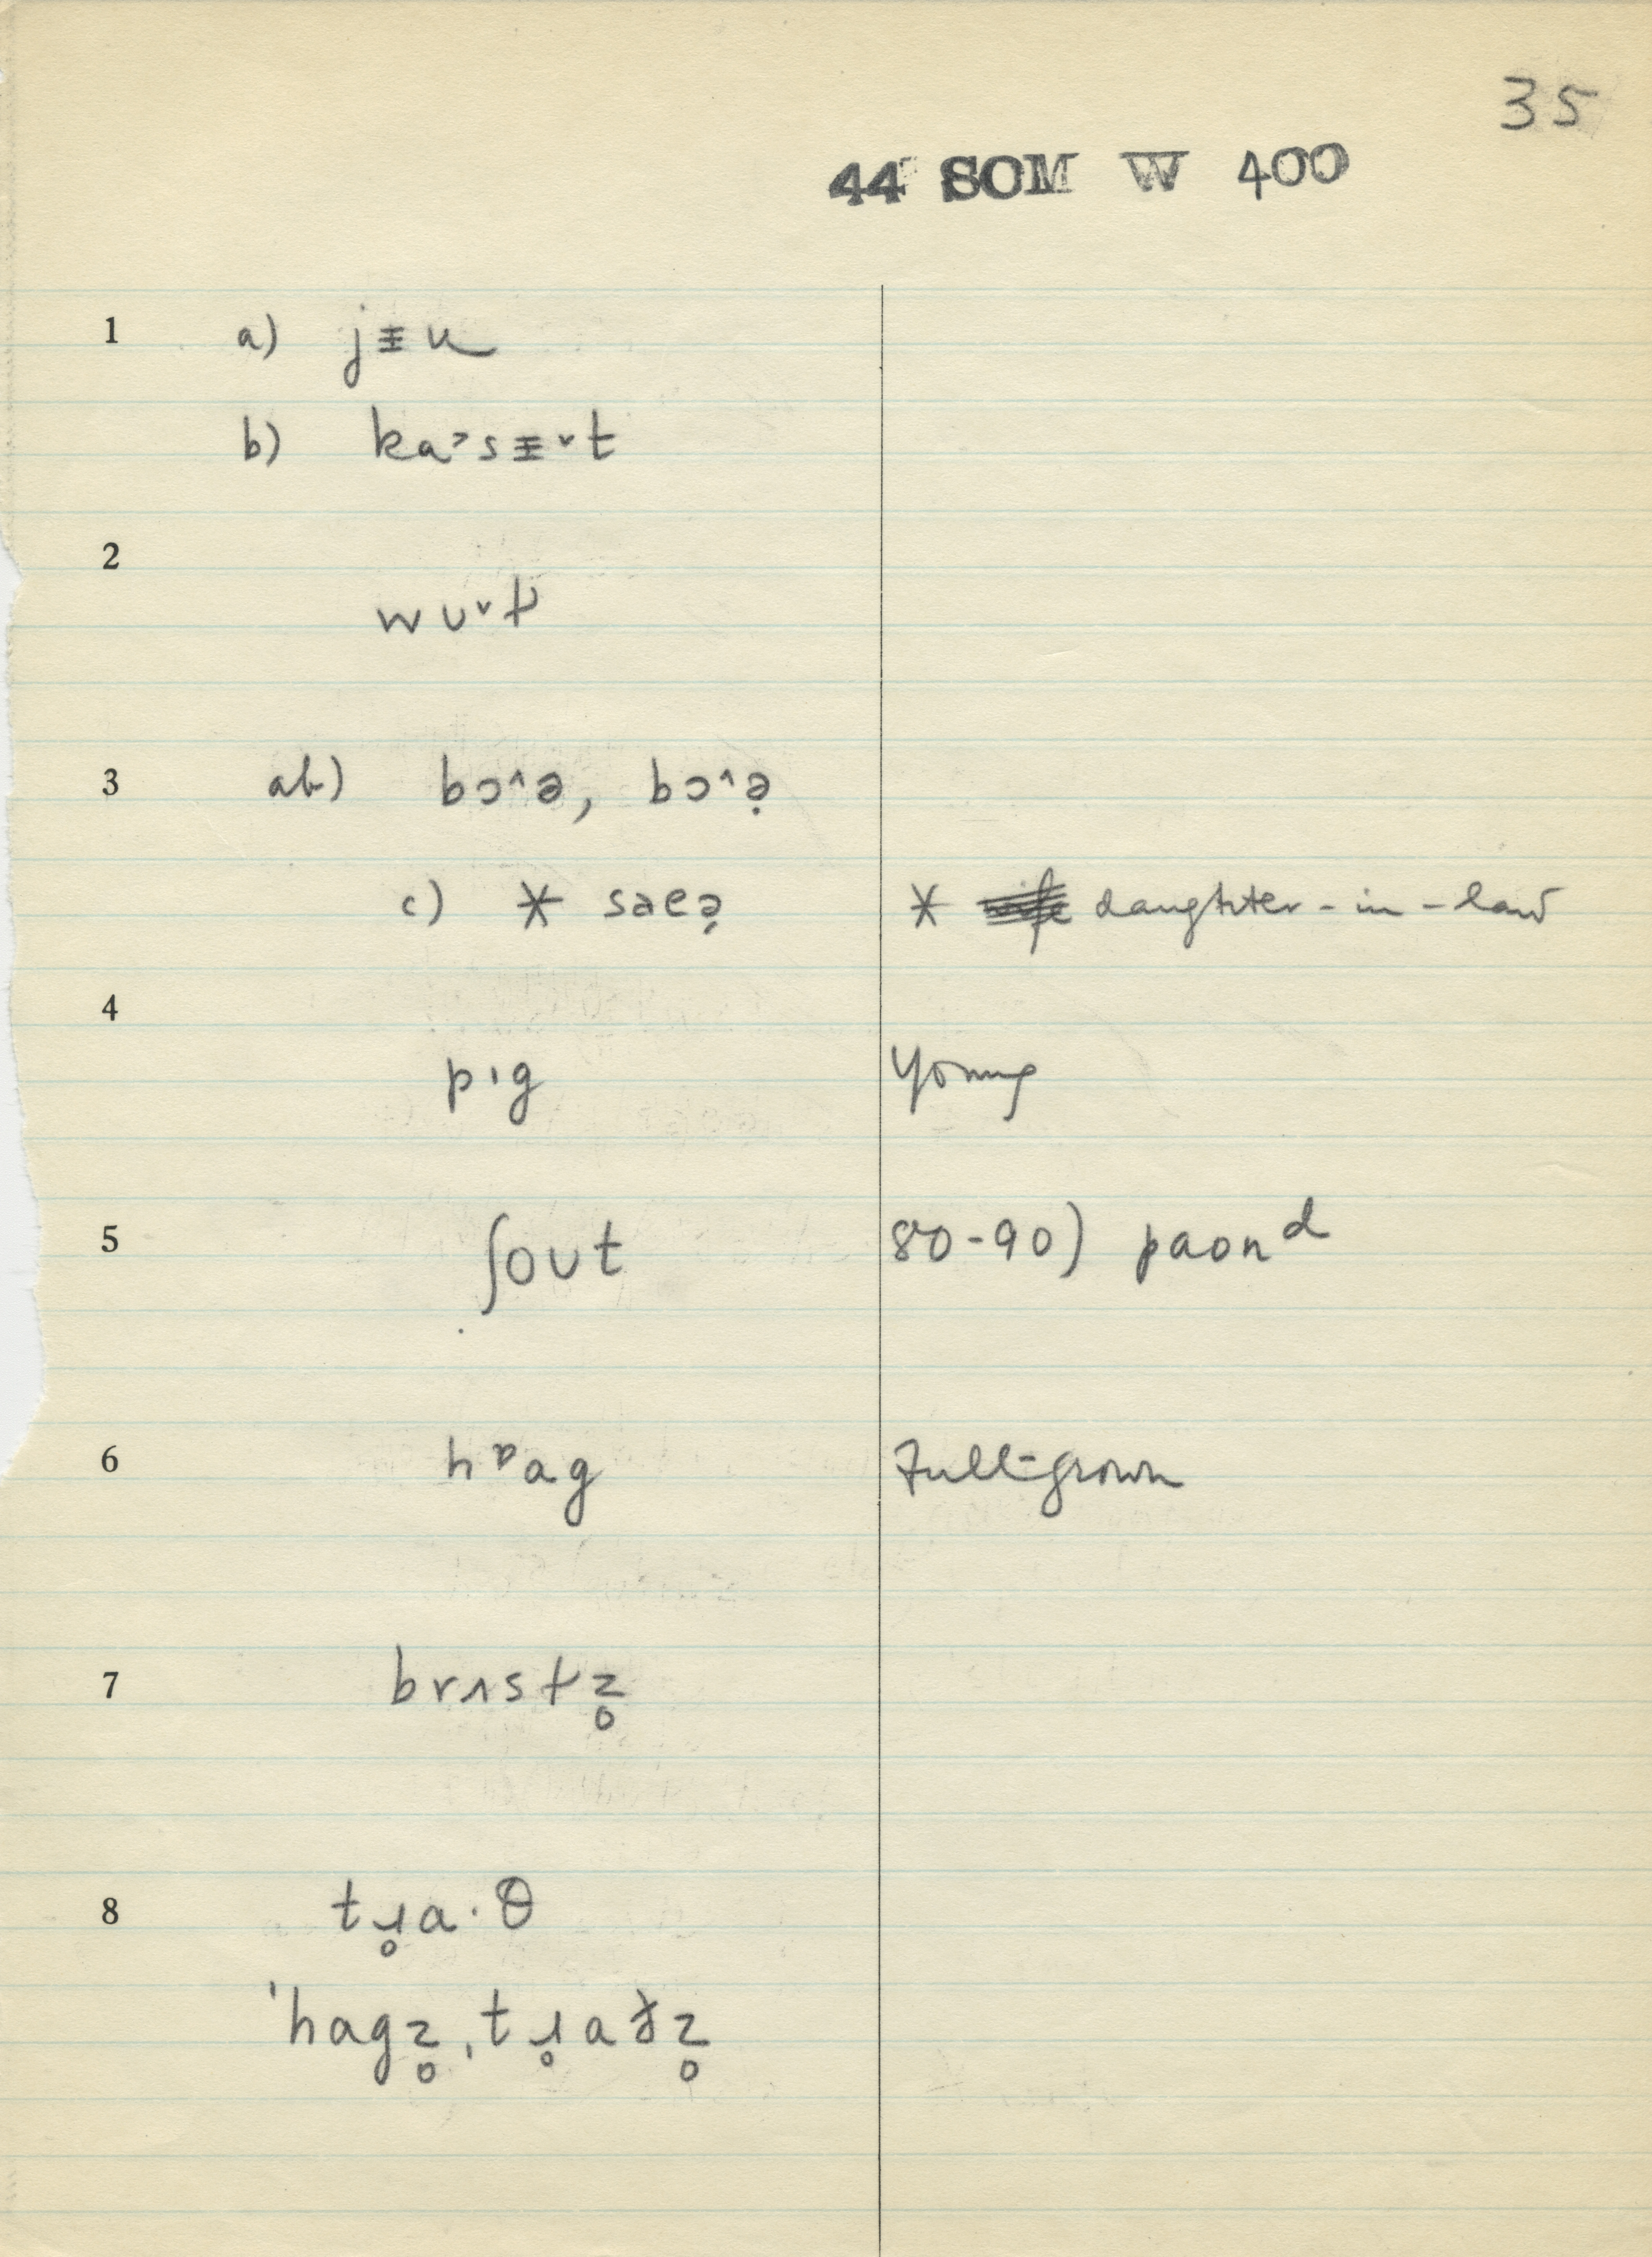 35
44 SOM W 400
1 a) jᵻu
b) ka˃sᵻ˅t
2
wʊ˅t̬
3 ab) bɔ˄ə, bɔ˄ə̣
c) * saeə̣ * daughter-in-law
4
pıg young
5 ʃoʊt 80-90) paonᵈ
6 hᶛag Full-grown
7 brɪst̬z̥
8 tɹ̥a·θ
ˈhagz̥ˌtɹ̥aðz̥